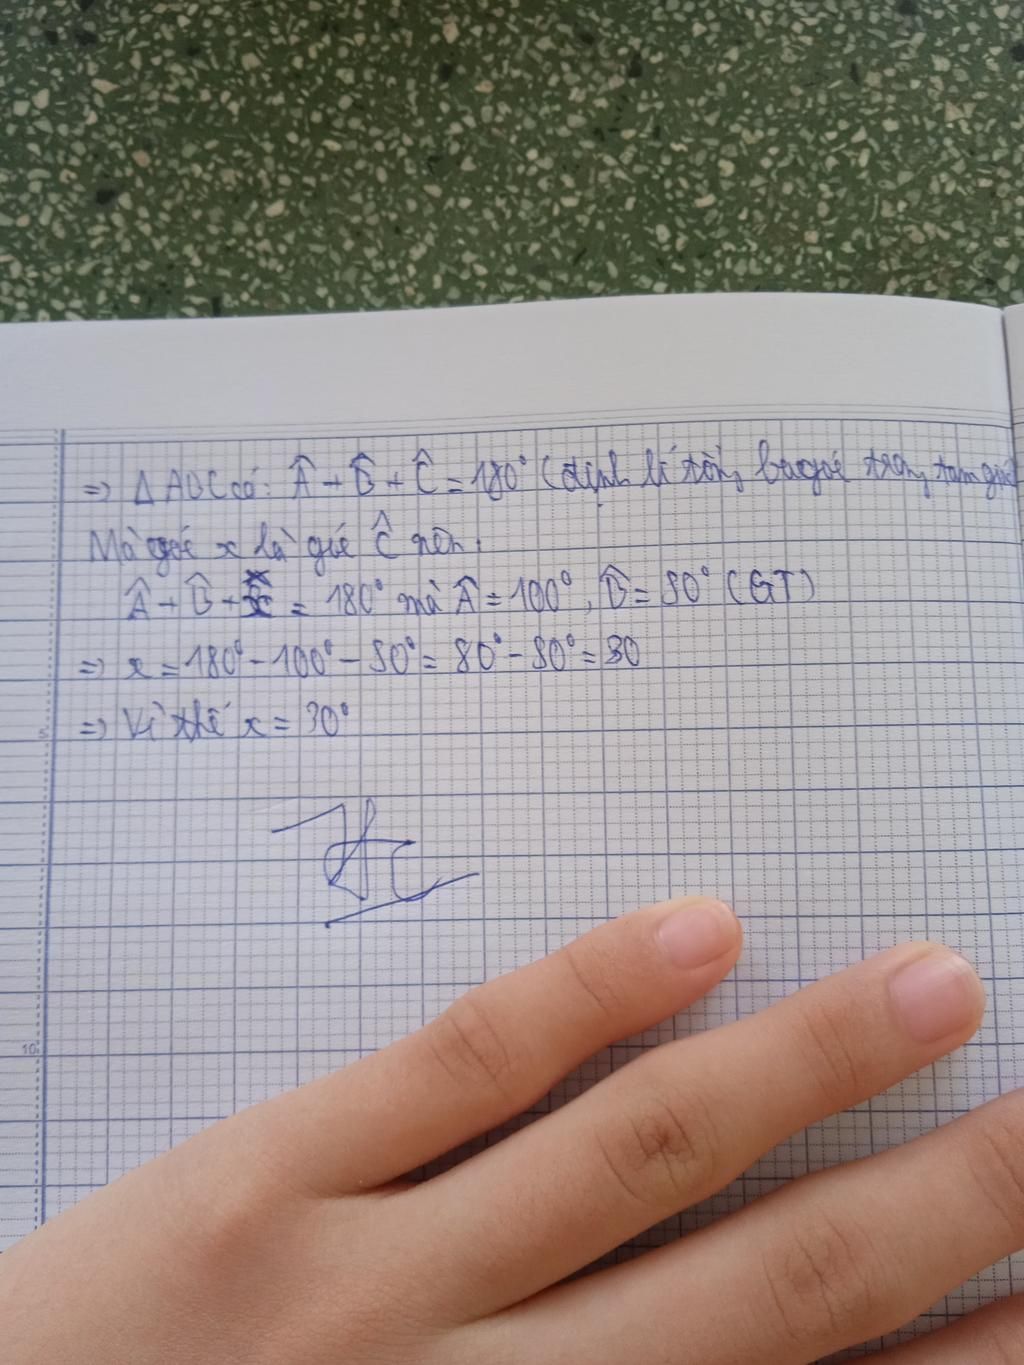 => Δ ABC có: Â + B̂ + Ĉ = 180° (định lí tổng ba góc trong tam giác
Mà góc x là góc Ĉ nên.
Â + B̂ + x = 180° mà Â = 100°, B̂ = 50° (GT)
=> x = 180° - 100° - 50° = 80° - 50° = 30
5 => Vì thế x = 30°
10